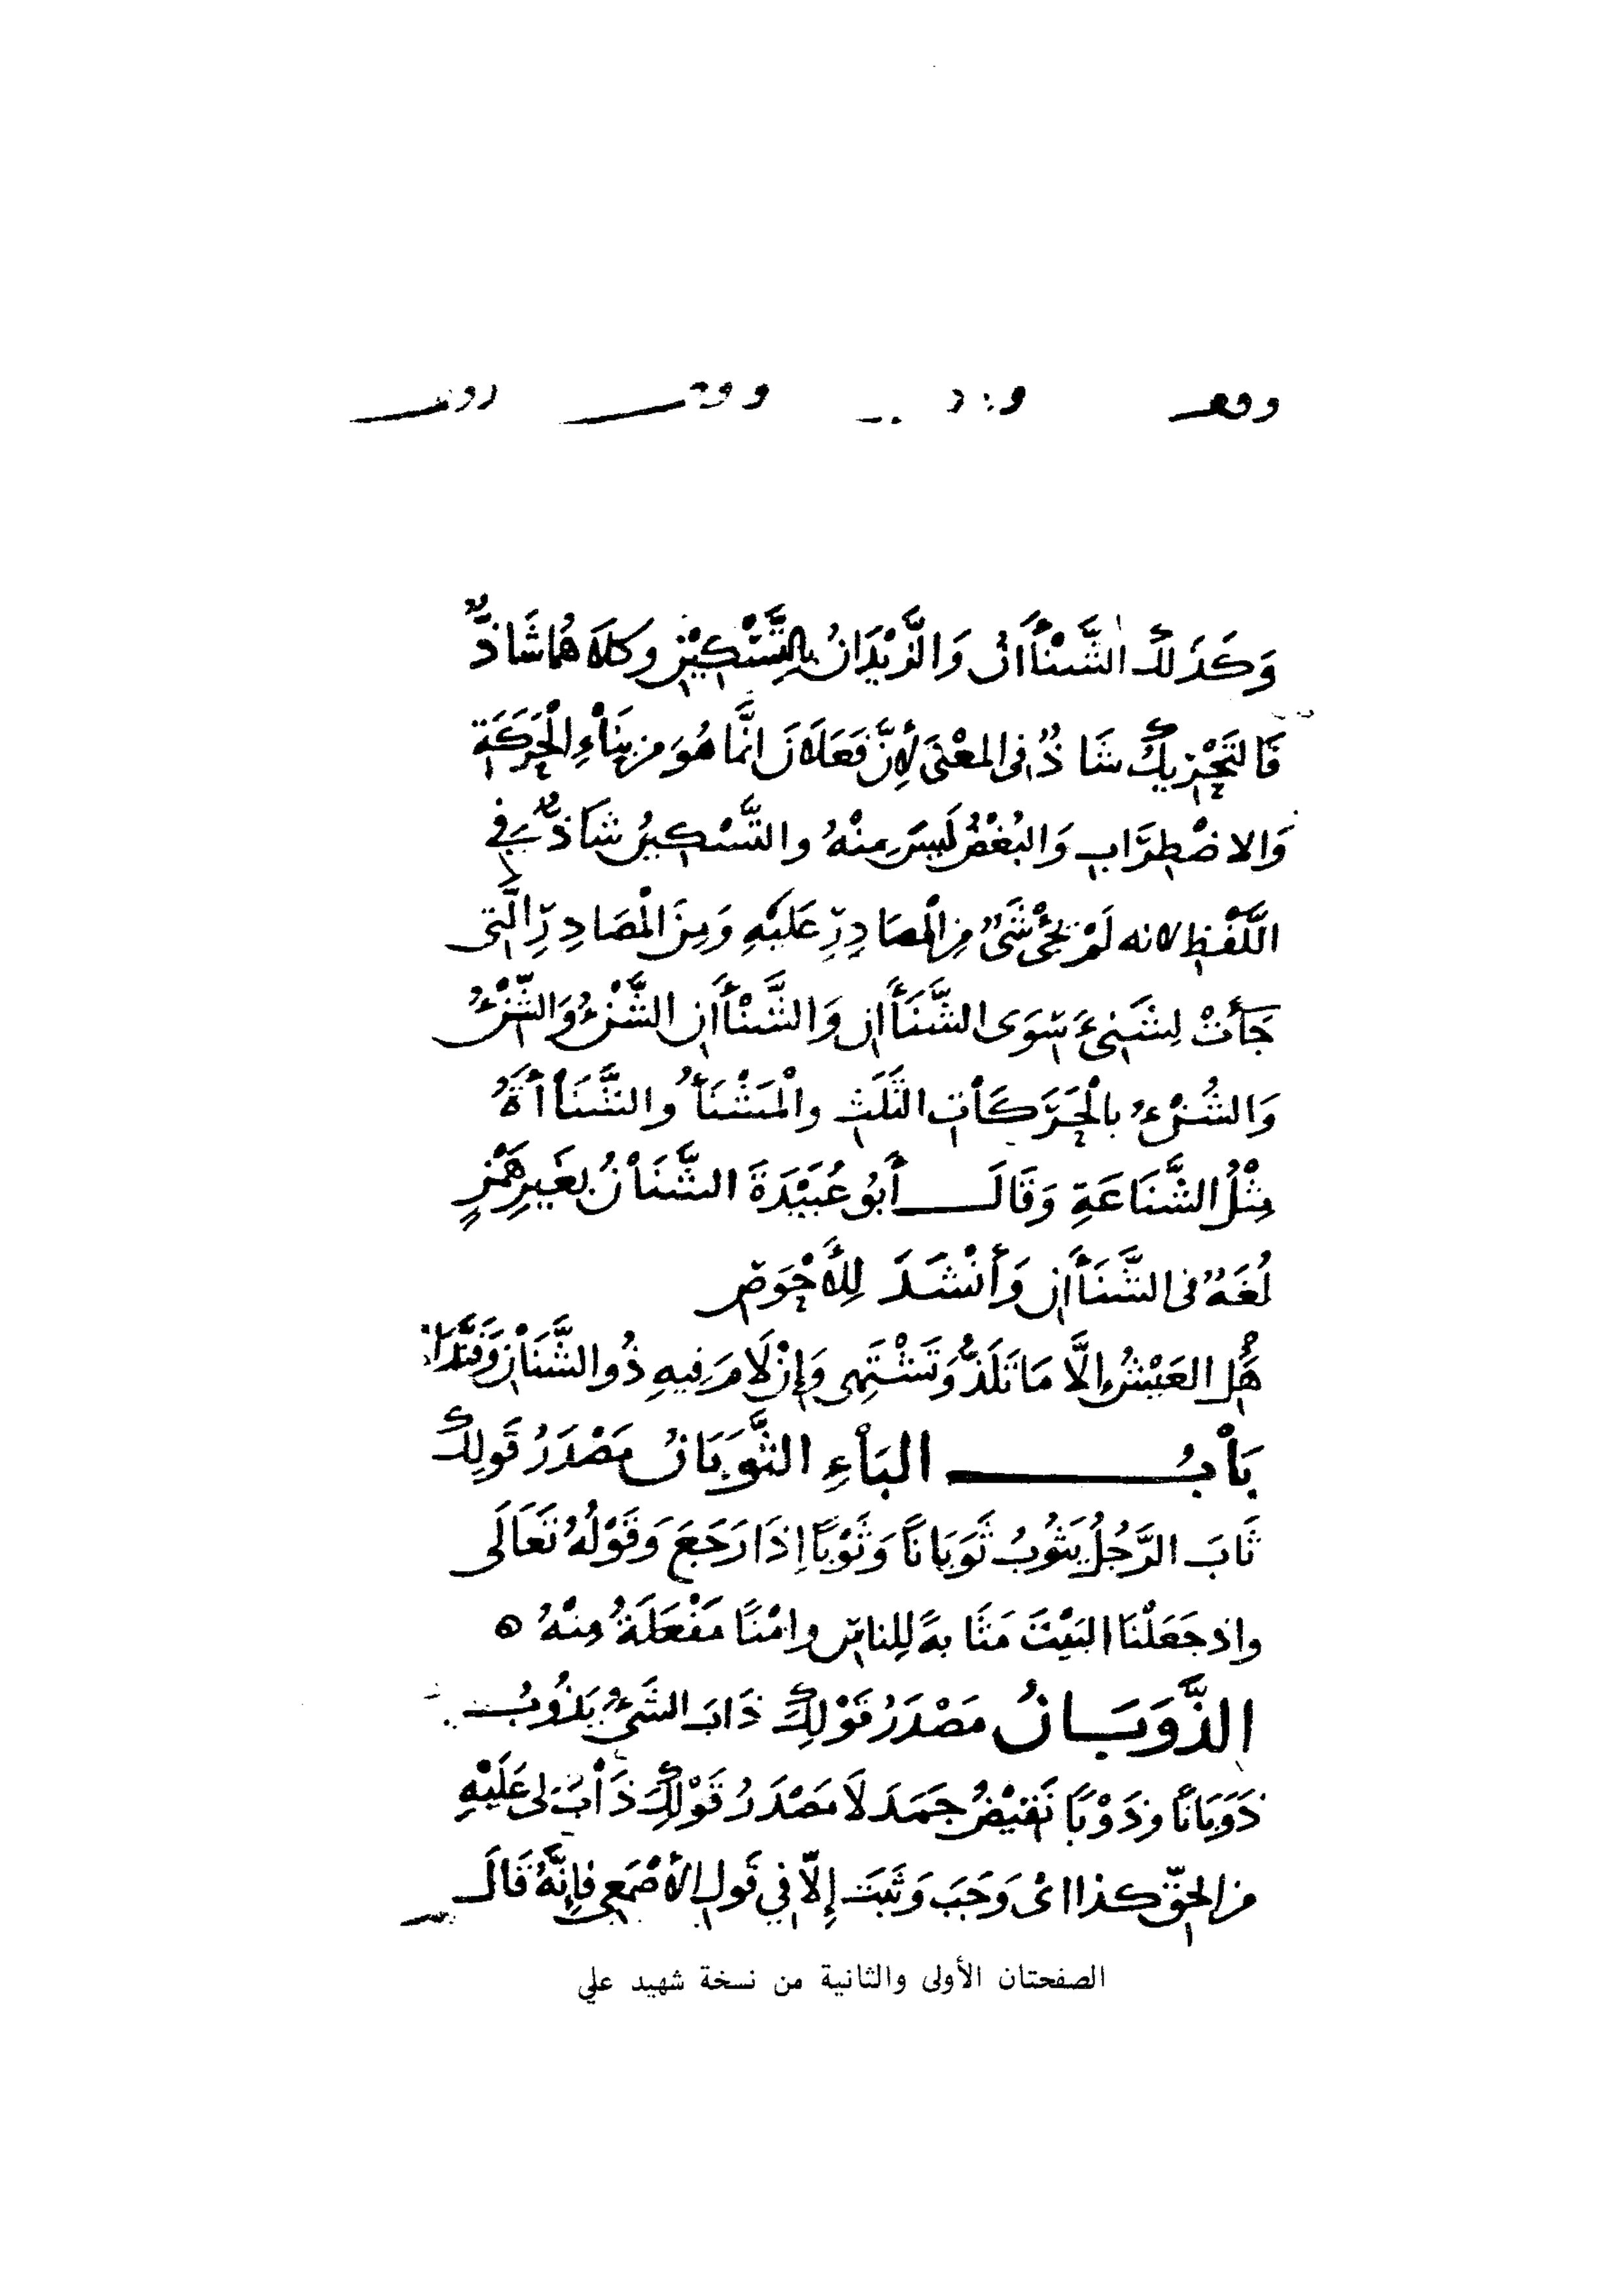 وقف
وَكَذَلِكَ الشَّنْأَانُ وَالزَّيْدَانُ بِالتَّسْكِيْنِ وَكِلَاهُمَا شَاذٌّ
فَالتَّحْرِيكُ شَاذٌّ فِى المَعْنَى لِأَنَّ فَعَلَانَ انَّمَا هُوَ مِن بِنَاءِ الْحَرَكَةِ
وَالاضْطِرَابِ وَالبُغْضُ لَيسَ مِنْهُ والتَّسْكِينُ شَاذٌّ فِي
اللَّفْظِ لانه لَمْ يَجِئْ شَىْءٌ مِنَ الْمصَادِرِ عَلَيْهِ وَمِنَ الْمَصَادِرِ الَّتِى
جَأَتْ لِشَنِىءَ سِوَى الشَّنَأَانِ وَالشَّنْأَانِ الشَّنْءُ وَالشِّنْءُ
وَالشُّنْءُ بالْحَرَكَاتِ الثَّلَثِ والْمَشْنَأُ والشَّنَاأَةُ
مِثْلُ الشَّنَاعَةِ وَقَالَ أَبُو عُبَيْدَةَ الشَّنَانُ بِغَيرِ هَمْزٍ
لُغَةٌ فى الشَّنَأَانِ وَأَنْشَدَ لِلأَحْوَصِ
هَلِ العَيْشُ إلَّا مَا تَلَذُّ وَتَشْتَهِى وَإِنْ لَامَ فِيهِ ذُو الشَّنَانِ وَفَنَّدَا
بَابُ البَاءِ الثَّوَبَانُ مَصْدَرُ قَولِكَ
ثَابَ الرَّجُلُ يَثُوبُ ثَوَبَانًا وَثَوْبًا إذَا رَجَعَ وَقَوْلُهُ تَعَالَى
واذ جَعَلْنَا البَيْتَ مَثَابةً لِلناسِ وامْنًا مَفْعَلَةٌ مِنْهُ ه
الذَّوَبَانُ مَصْدَرُ قَوْلِكَ ذَابَ الشَىْءُ يَذُوبُ
ذَوَبَانًا وذَوْبًا نَقِيْضُ جَمَدَ لَا مَصْدَرُ قَوْلِكَ ذَابَ لِى عَلَيْهِ
مِنَ الحَقِّ كذا اىْ وَجَبَ وَثَبَتَ إِلّا فِي قَولِ الأَصْمَعِي فَإِنَّهُ قَالَ
الصفحتان الأولى والثانية من نسخة شهيد علي